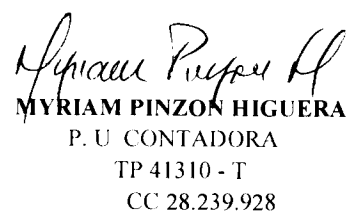 Myriam Pinzon H
MYRIAM PINZON HIGUERA
P. U CONTADORA
TP 41310 - T
CC 28.239.928